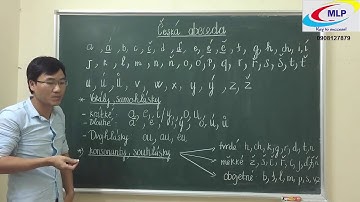 MLP
Key to success!
0908127879
Česká abeceda
a, á, b, c, č, d, ď, e, é, ě, f, g, h, ch, i, í
j, k, l, m, n, ň, o, ó, p, q, r, ř, s, š, t, ť
u, ú, ů, v, w, x, y, ý, z, ž
* Vokály, samohlásky
- Krátké: a, e, i/y, o, u
- Dlouhé: á, é, í/ý, ó, ú, ů
- Dvojhlásky ou, au, eu
* konsonanty, souhlásky
tvrdé h, ch, k, g, r, d, t, n
měkké ž, š, č, ř, c, j, ď, ť, ň
obojetné b, f, l, m, p, s, v, z